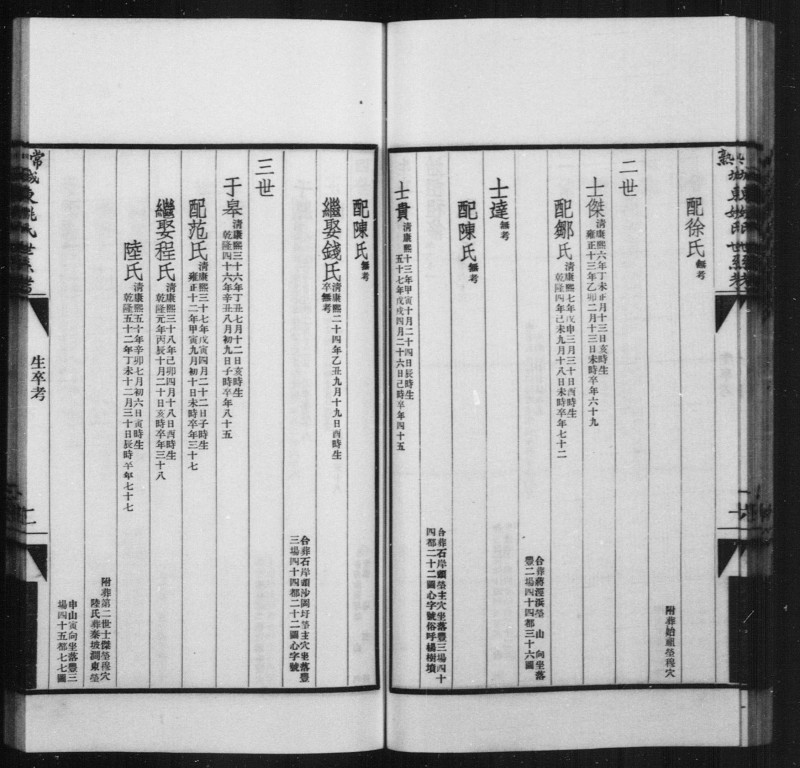 配徐氏無考
附葬始祖塋穆穴
二世
士傑清康熙六年丁未正月十三日亥時生
雍正十三年乙卯二月十三日未時卒年六十九
配鄒氏清康熙七年戊申三月三十日酉時生
乾隆四年己未九月十八日未時卒年七十二
合葬蔣涇浜塋 山 向坐落
豐二場四十四都三十六圖
士達無考
配陳氏無考
士貴清康熙十三年甲寅十月二十四日辰時生
五十七年戊戌四月二十六日己時卒年四十五
合葬石岸頭塋主穴坐落豐三場四十
四都二十二圖心字號俗呼楊樹墳
配陳氏無考
繼娶錢氏清康熙二十四年乙丑九月十九日酉時生
卒無考
合葬石岸頭沙圩塋主穴坐落豐
三場四十四都二十二圖心字號
三世
于皋清康熙三十六年丁丑七月十二日亥時生
乾隆四十六年辛丑八月初九日子時卒年八十五
配范氏清康熙三十七年戊寅四月二十二日子時生
雍正十二年甲寅九月初十日未時卒年三十七
繼娶程氏清康熙三十八年己卯四月十八日酉時生
乾隆元年丙辰十月二十日亥時卒年三十八
陸氏清康熙五十年辛卯七月初六日寅時生
乾隆五十二年丁未十二月三十日辰時卒年七十七
附葬第二世士傑塋穆穴
陸氏葬秦坡澗東塋
申山寅向坐落豐三
場四十五都七七圖
生卒考
二